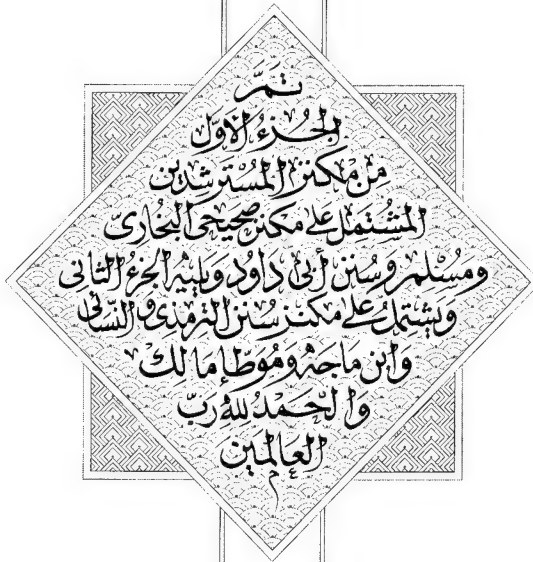 تمَّ
الجُزءُ الأوّل
مِن مكنز المُسْترشدين
المشْتمِل على مكنز صحيحى البُخارىّ
ومُسْلم وسُنن أبى داوُد ويليه الجزءُ الثانى
ويشتمل على مكنز سُنن الترمذى والنّسائى
وابن ماجه ومُوطّإ مالك
والحَمدُ للّه ربّ
العالمين